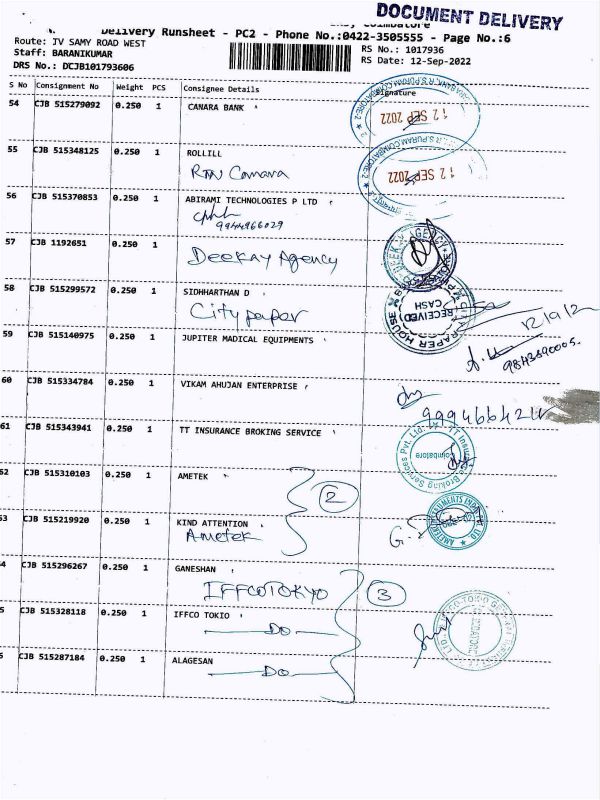 DOCUMENT DELIVERY
Coimbatore
Delivery Runsheet - PC2 - Phone No.:0422-3505555 - Page No.:6
Route: JV SAMY ROAD WEST
RS No.: 1017936
Staff: BARANIKUMAR
RS Date: 12-Sep-2022
DRS No.: DCJB101793606
S No Consignment No Weight PCS Consignee Details Signature
54 CJB 515279092 0.250 1 CANARA BANK
12 SEP 2022
55 CJB 515348125 0.250 1 ROLLILL
12 SEP 2022
56 CJB 515370853 0.250 1 ABIRAMI TECHNOLOGIES P LTD
9944966029
57 CJB 1192651 0.250 1
Deekay Agency
58 CJB 515299572 0.250 1 SIDHHARTHAN D
City paper
RECEIVED CASH
12/9/2
59 CJB 515140975 0.250 1 JUPITER MADICAL EQUIPMENTS
9843690005.
60 CJB 515334784 0.250 1 VIKAM AHUJAN ENTERPRISE
61 CJB 515343941 0.250 1 TT INSURANCE BROKING SERVICE
TT Insurance Broking Services Pvt. Ltd.
Coimbatore
62 CJB 515310103 0.250 1 AMETEK
2
53 CJB 515219920 0.250 1 KIND ATTENTION
Ametek
4 CJB 515296267 0.250 1 GANESHAN
IFFCOTOKYO
3
5 CJB 515328118 0.250 1 IFFCO TOKIO
Do
5 CJB 515287184 0.250 1 ALAGESAN
Do